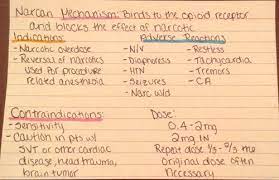 Narcan Mechanism: Binds to the opioid receptor
and blocks the effect of narcotic
Indications:
- Narcotic overdose
- Reversal of narcotics
used for procedure
related anesthesia
Adverse Reactions
- N/V
- Diaphoresis
- HTN
- Seizures
- Narc w/d
- Restless
- Tachycardia
- Tremors
- CA
Contraindications:
- Sensitivity
- Caution in pts w/
SVT or other cardiac
disease, head trauma,
brain tumor
Dose:
0.4-2mg
2mg IN
Repeat dose 1/3-2/3 the
Original dose often
Necessary